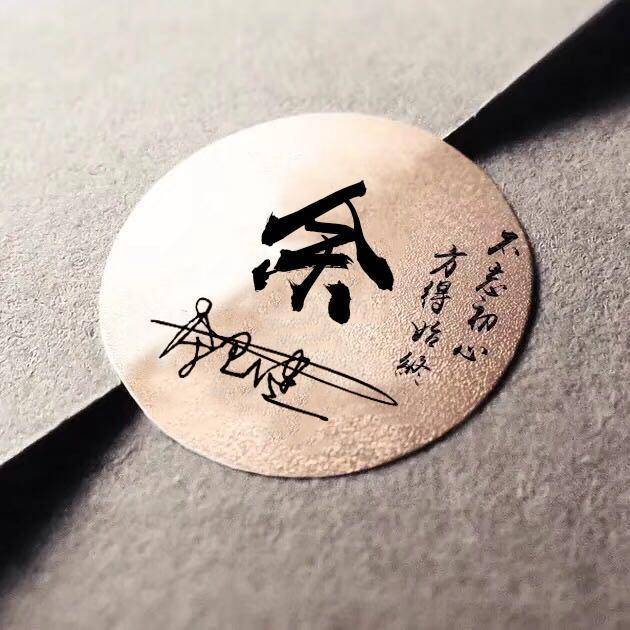 余
不忘初心
方得始終